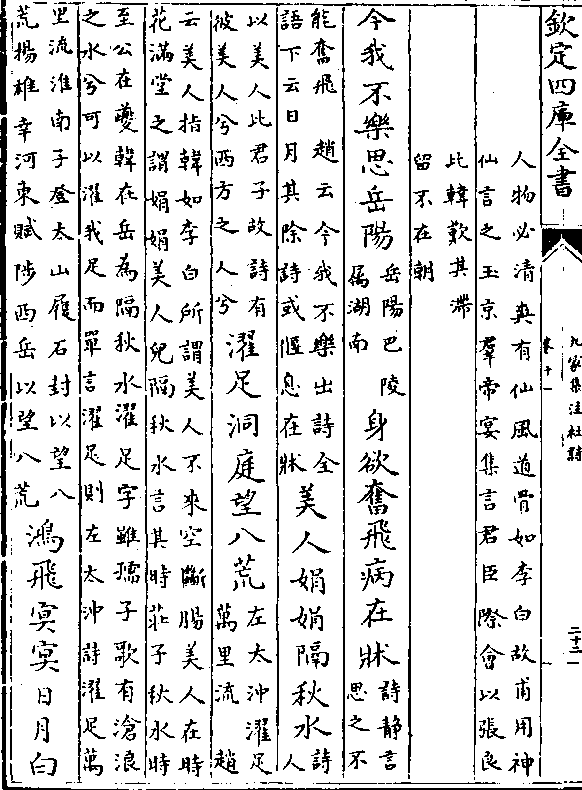 欽定四庫全書
九家集注杜詩
卷十一
二十二
人物必清爽有仙風道骨如李白故甫用神
仙言之玉京羣帝宴集言君臣際會以張良
此韓歎其滯
留不在朝
今我不樂思岳陽
岳陽巴陵
屬湖南
身欲奮飛病在牀
詩静言
思之不
能奮飛 趙云今我不樂出詩全
語下云日月其除詩或偃息在牀
美人娟娟隔秋水
詩
人
以美人比君子故詩有
彼美人兮西方之人兮
濯足洞庭望八荒
左太沖濯足
萬里流 趙
云美人指韓如李白所謂美人不来空斷腸美人在時
花滿堂之謂娟娟美人皃隔秋水言其時莊子秋水時
至公在夔韓在岳為隔秋水濯足字雖孺子歌有滄浪
之水兮可以濯我足而單言濯足則左太沖詩濯足萬
里流淮南子登太山履石封以望八
荒揚雄幸河東賦陟西岳以望八荒
鴻飛冥冥日月白